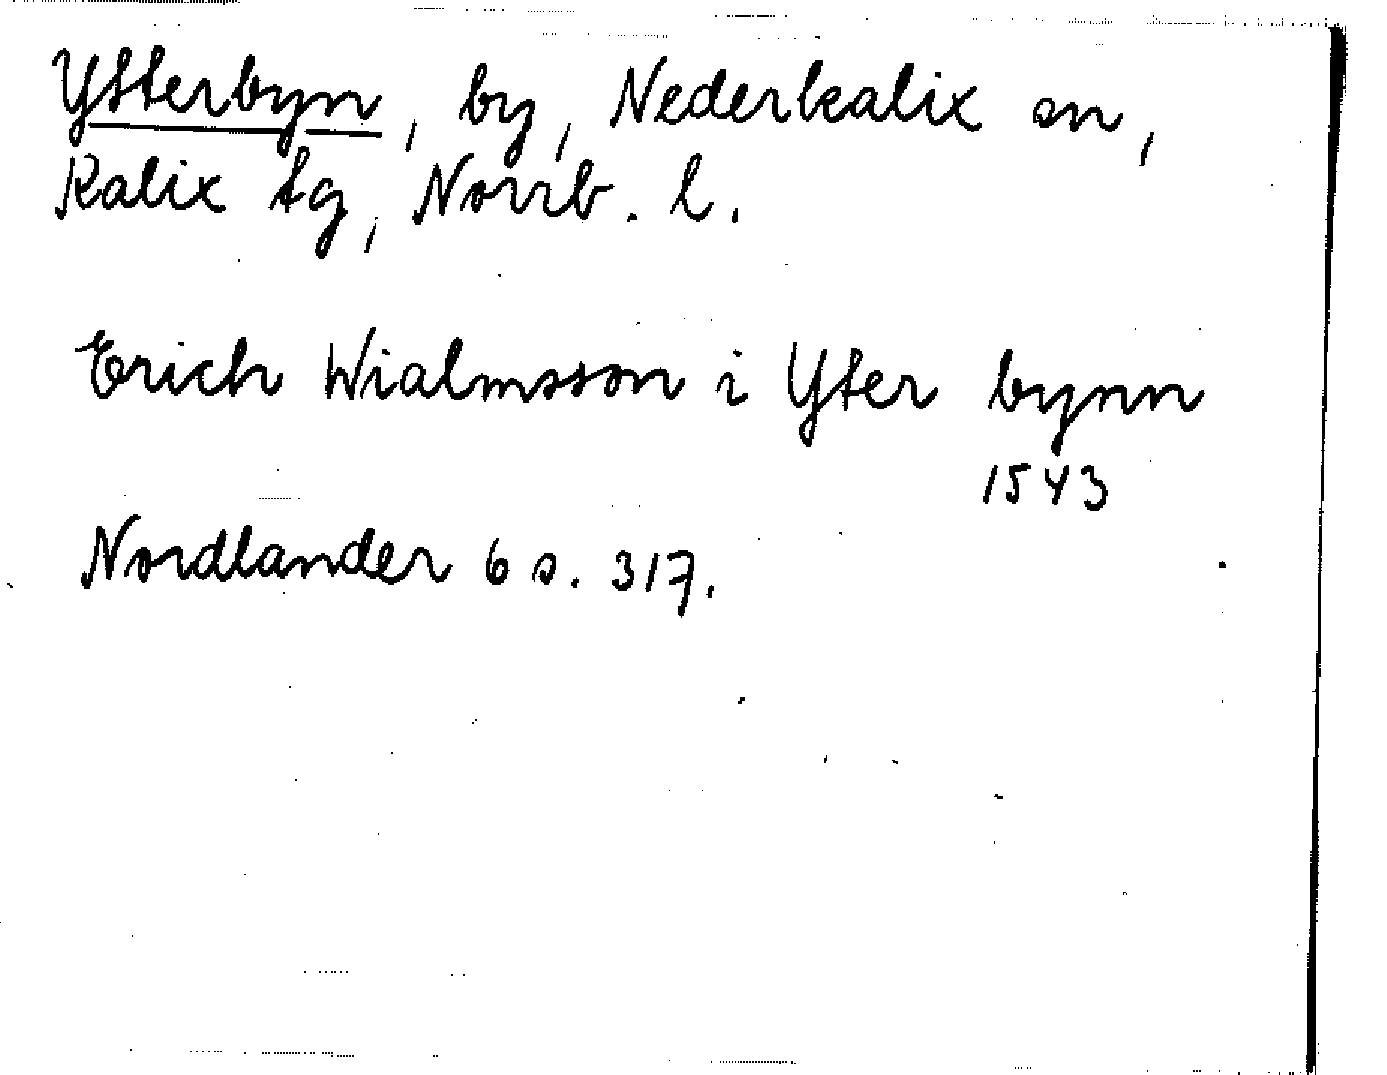 Ytterbyn, by, Nederkalix sn,
Kalix tg, Norrb. l.
Erich Wialmsson i Yter bynn
1543
Nordlander 6 s. 317.